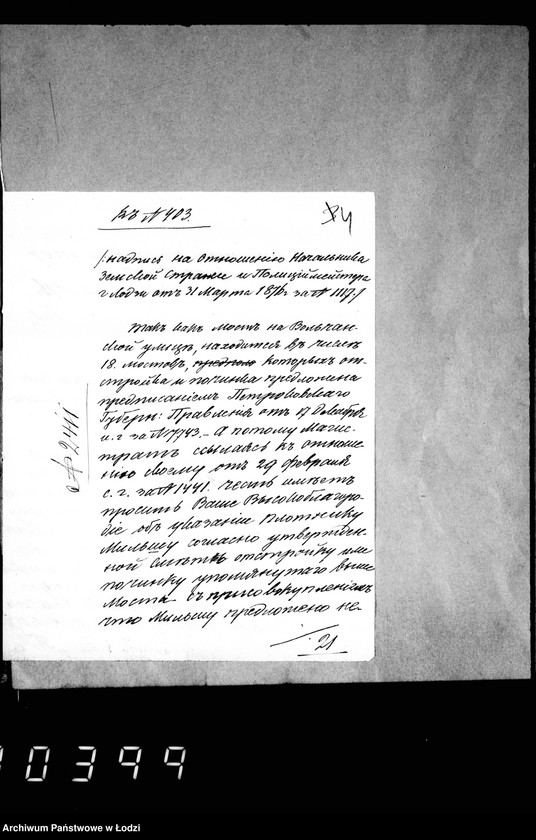 Къ № 403.
34
/: надпись на отношенію Начальника
Земской Стражи и Полиціймейстра
г. Лодзи отъ 31 Марта 1876 г за № 1117 :/
Такъ какъ мостъ на Вольчан-
ской улицѣ, находится въ числѣ
18. мостовъ, которыхъ от-
стройка и починка предложена
предписаніемъ Петроковскаго
Губерн: Правленія отъ 17 Декабря
и. г за № 7743. – А потому Магис-
тратъ ссылаясь къ отноше-
нію своему отъ 29 февраля
с. г. за № 1441. честь имѣетъ
просить Ваше Высокоблагоро-
діе объ указаніе плотнику
Мильшу согласно утвержден-
ной смѣтѣ отстройку или
починку упомянутаго выше
моста съ присовокупленіемъ
что Мильшу предложено не-
21
№ 2411
0399
Archiwum Państwowe w Łodzi